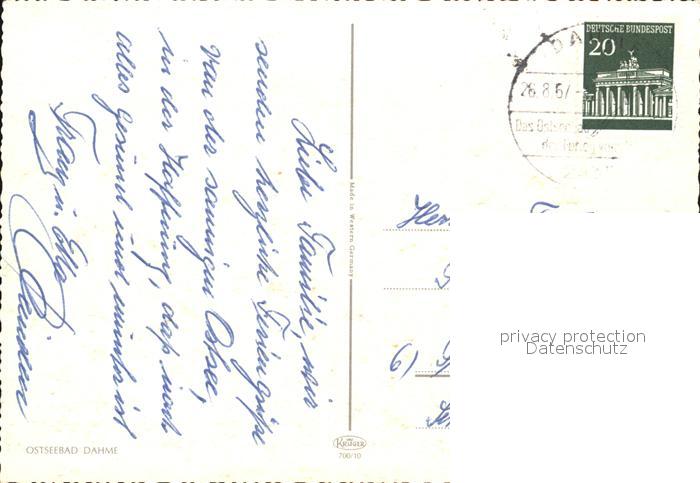 Liebe Familie, wir
senden herzliche Feriengrüße
von der sonnigen Ostsee,
in der Hoffnung, daß noch
alles gesund und munter ist
u.
OSTSEEBAD DAHME
Made in Western Germany
KRÜGER
700/10
DEUTSCHE BUNDESPOST
20
DA
28.8.67
Das Ostseebad
6)
privacy protection
Datenschutz